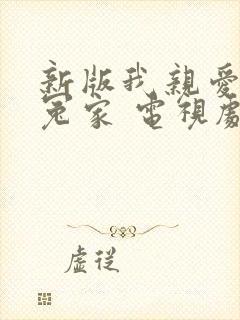 新版我親愛
冤家 電視劇
虛從